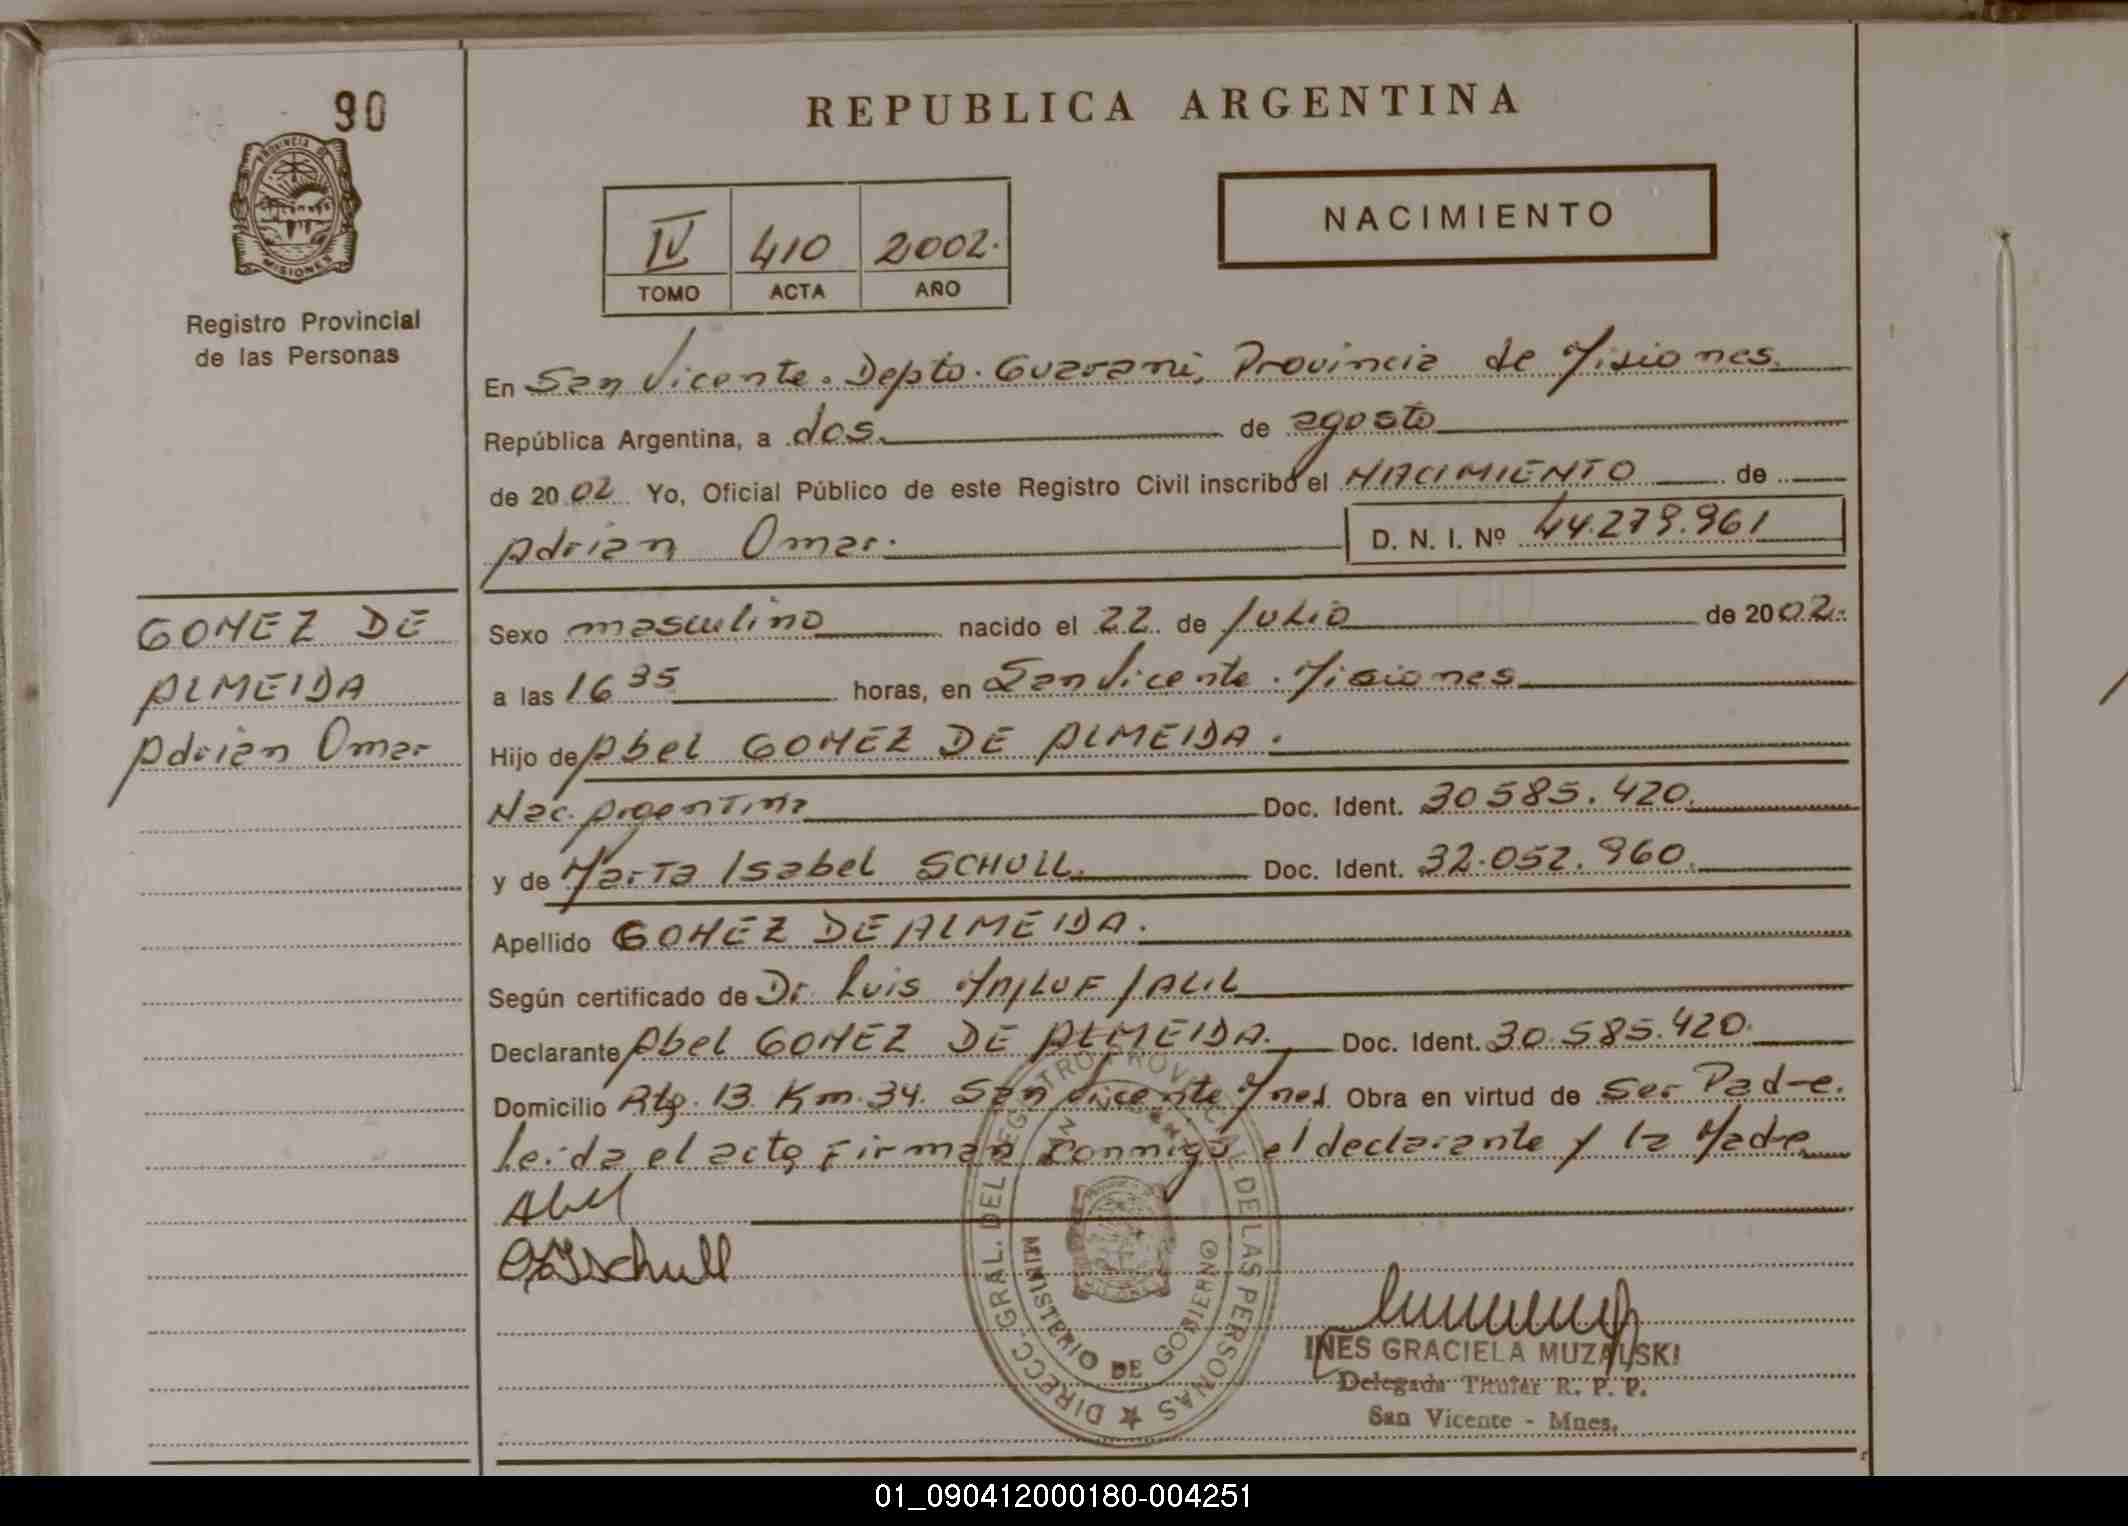 90
PROVINCIA DE
MISIONES
Registro Provincial
de las Personas
REPUBLICA ARGENTINA
NACIMIENTO
IV 410 2002.
TOMO ACTA AÑO
En San Vicente. Depto. Guarani, Provincia de Misiones.
República Argentina, a dos. de agosto
de 2002 Yo, Oficial Público de este Registro Civil inscribo el NACIMIENTO de
Adrian Omar. D. N. I. Nº 44.279.961
GOMEZ DE
ALMEIDA
Adrian Omar
Sexo masculino nacido el 22 de Julio de 2002.
a las 16 35 horas, en San Vicente. Misiones
Hijo de Abel GOMEZ DE ALMEIDA.
Nac. Argentina Doc. Ident. 30585.420.
y de Marta Isabel SCHULL. Doc. Ident. 32.052.960.
Apellido GOMEZ DE ALMEIDA.
Según certificado de Dr. Luis JALIL
Declarante Abel GOMEZ DE ALMEIDA. Doc. Ident. 30.585.420.
Domicilio Km. 34. San Vicente Mnes. Obra en virtud de Ser Padre.
leida el acta, Firman conmigo el declarante y la Madre
Abel
Schull
DIRECC. GRAL. DEL REGISTRO PROVINCIAL DE LAS PERSONAS
MINISTERIO DE GOBIERNO
INES GRACIELA MUZALSKI
Delegada Titular R. P. P.
San Vicente - Mnes.
01_090412000180-004251